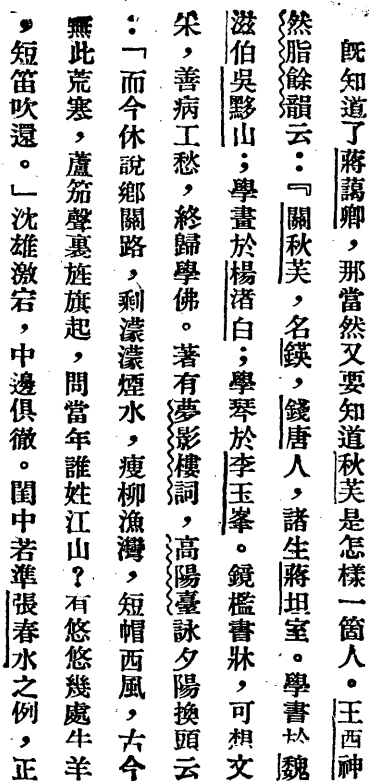 既知道了蔣藹卿，那當然又要知道秋芙是怎樣一箇人。王西神
然脂餘韻云：『關秋芙，名鍈，錢唐人，諸生蔣坦室。學書於魏
滋伯吳黟山；學畫於楊渚白；學琴於李玉峯。鏡檻書牀，可想文
采，善病工愁，終歸學佛。著有夢影樓詞，高陽臺詠夕陽換頭云
：「而今休說鄉關路，剩濛濛煙水，瘦柳漁灣，短帽西風，古今
無此荒寒，蘆笳聲裏旌旗起，問當年誰姓江山？有悠悠幾處牛羊
，短笛吹還。」沈雄激宕，中邊俱徹。閨中若準張春水之例，正